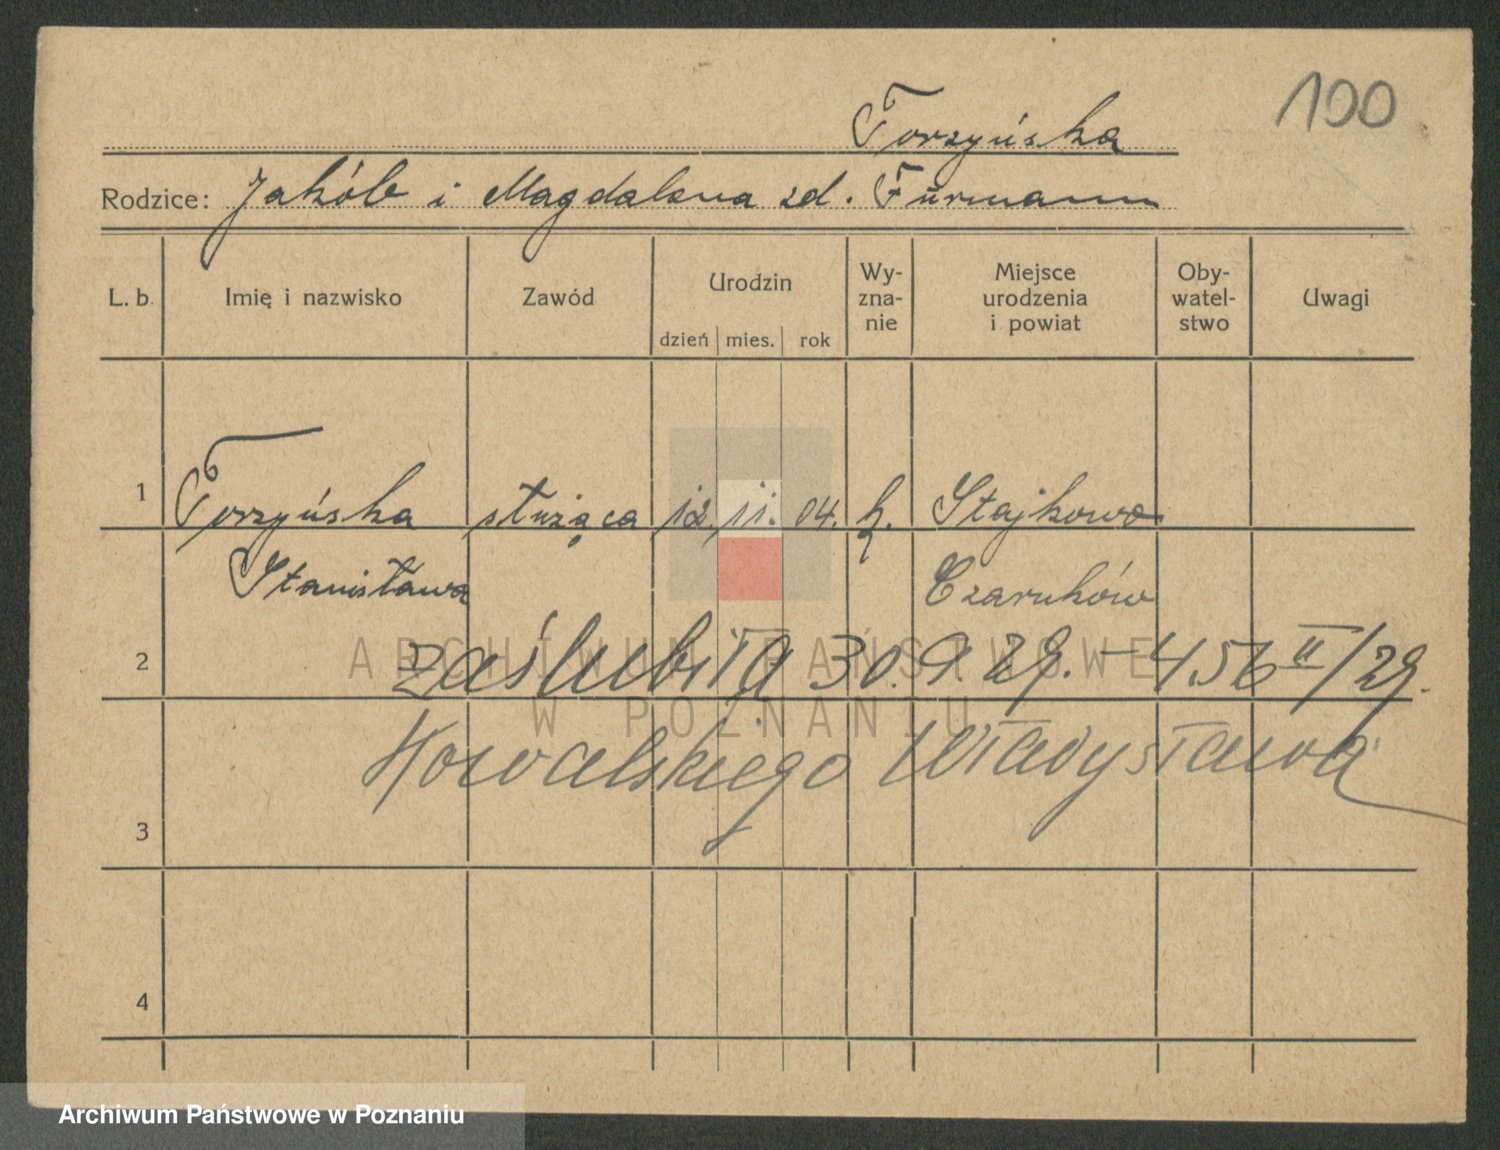 100
Torzyńska
Rodzice: Jakób i Magdalena zd. Furmann
L. b. Imię i nazwisko Zawód Urodzin dzień mies. rok Wy-zna-nie Miejsce urodzenia i powiat Oby-watel-stwo Uwagi
1 Torzyńska służąca 12. 11. 04. k. Stajkowo
Stanisława Czarnków
2 zaślubiła 30. 9. 29. – 456 II/29.
Kowalskiego Władysława
3
4
ARCHIWUM PAŃSTWOWE
W POZNANIU
Archiwum Państwowe w Poznaniu